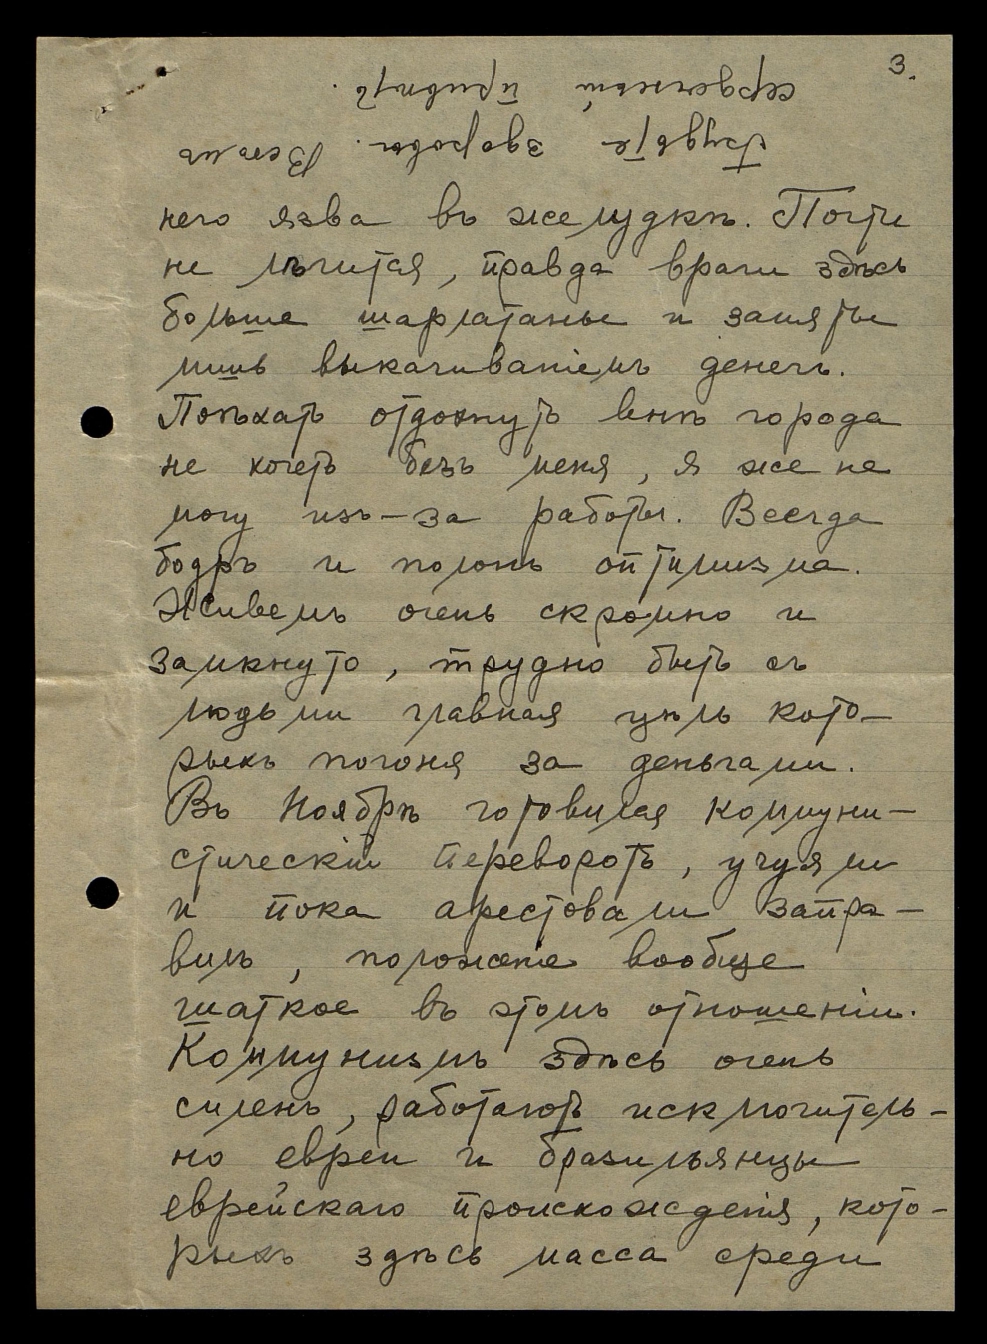 3.
Будьте здоровы. Всѣмъ
сердечный привѣтъ.
него язва въ желудкѣ. Почти
не лѣчится, правда врачи здѣсь
больше шарлатаны и заняты
лишь выкачиваніемъ денегъ.
Поѣхать отдохнуть внѣ города
не хочетъ безъ меня, я же не
могу изъ-за работы. Всегда
бодръ и полонъ оптимизма.
Живемъ очень скромно и
замкнуто, трудно быть съ
людьми главная цѣль кото-
рыхъ погоня за деньгами.
Въ Ноябрѣ готовился коммуни-
стическій переворотъ, учуяли
и пока арестовали запра-
вилъ, положеніе вообще
шаткое въ этомъ отношеніи.
Коммунизмъ здѣсь очень
силенъ, работаютъ исключитель-
но евреи и бразильянцы
еврейскаго происхожденія, кото-
рыхъ здѣсь масса среди